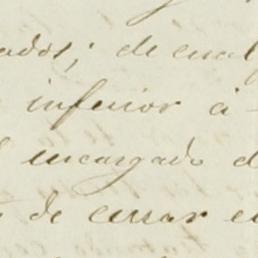 ados; de cual
inferior á
encargado d
de cerrar e